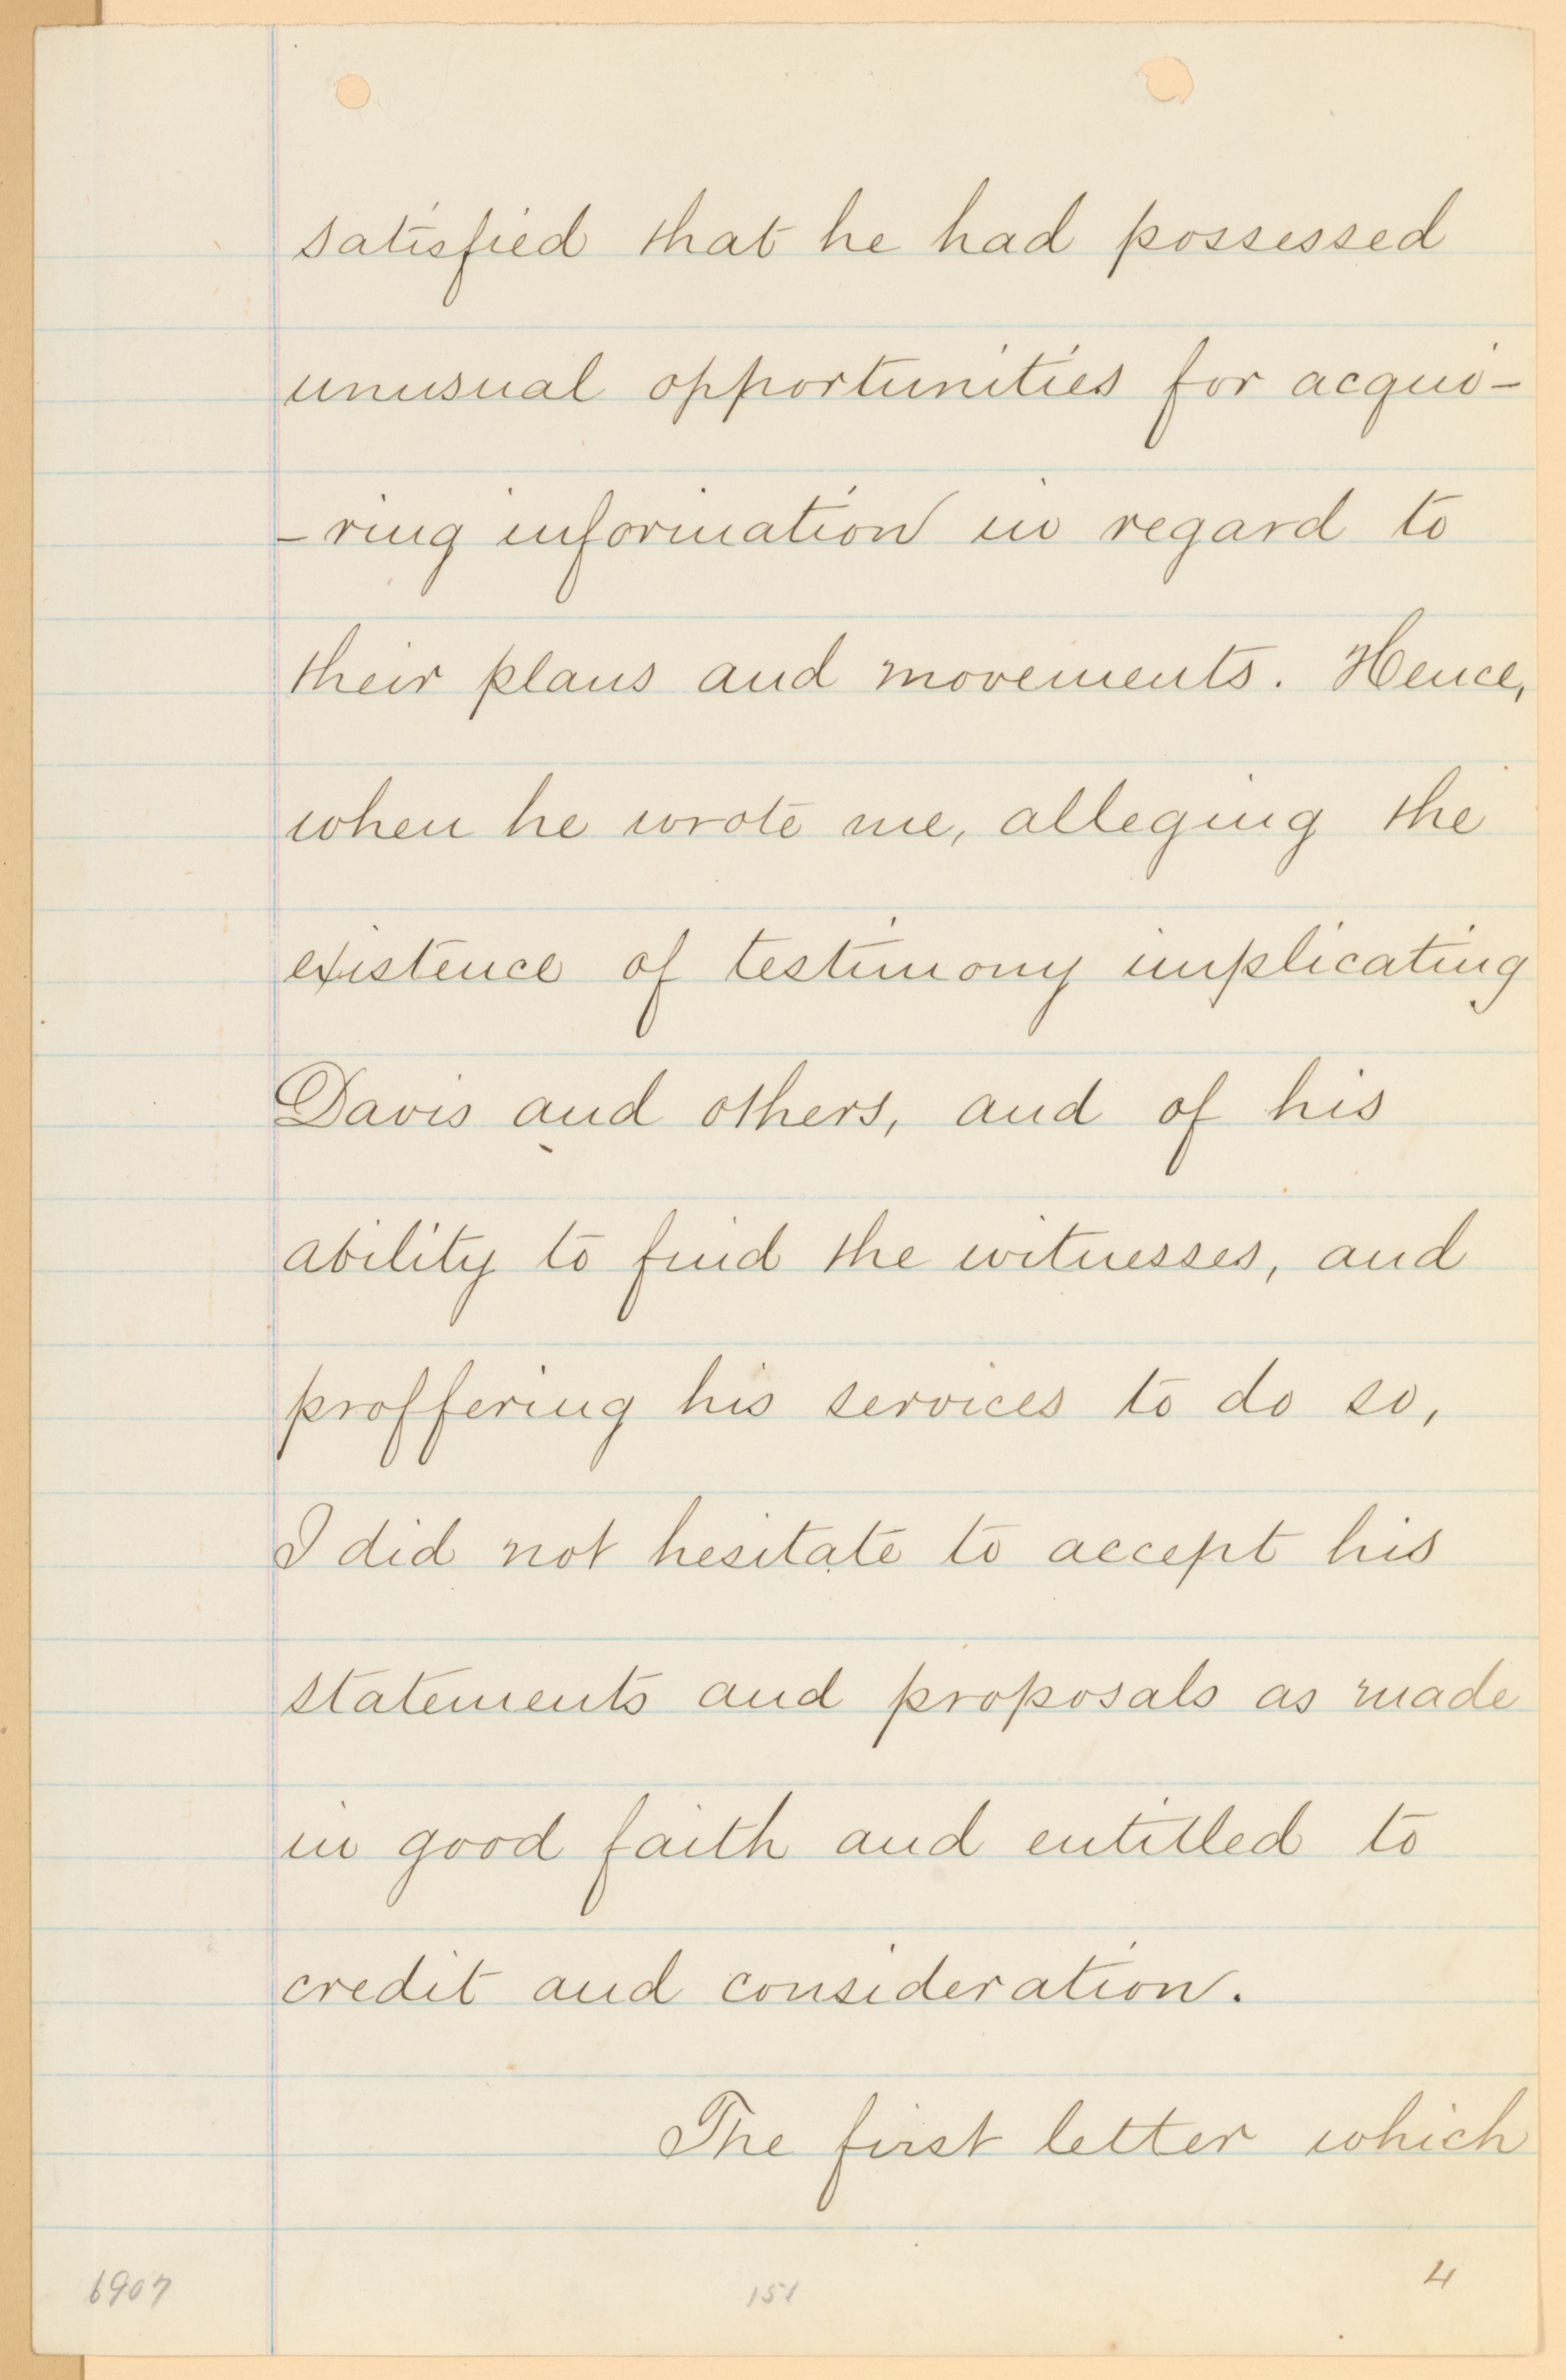 satisfied that he had possessed
unusual opportunities for acqui-
-ring information in regard to
their plans and movements. Hence,
when he wrote me, alleging the
existence of testimony implicating
Davis and others, and of his
ability to find the witnesses, and
proffering his services to do so,
I did not hesitate to accept his
statements and proposals as made
in good faith and entitled to
credit and consideration.
The first letter which
4
6907
151